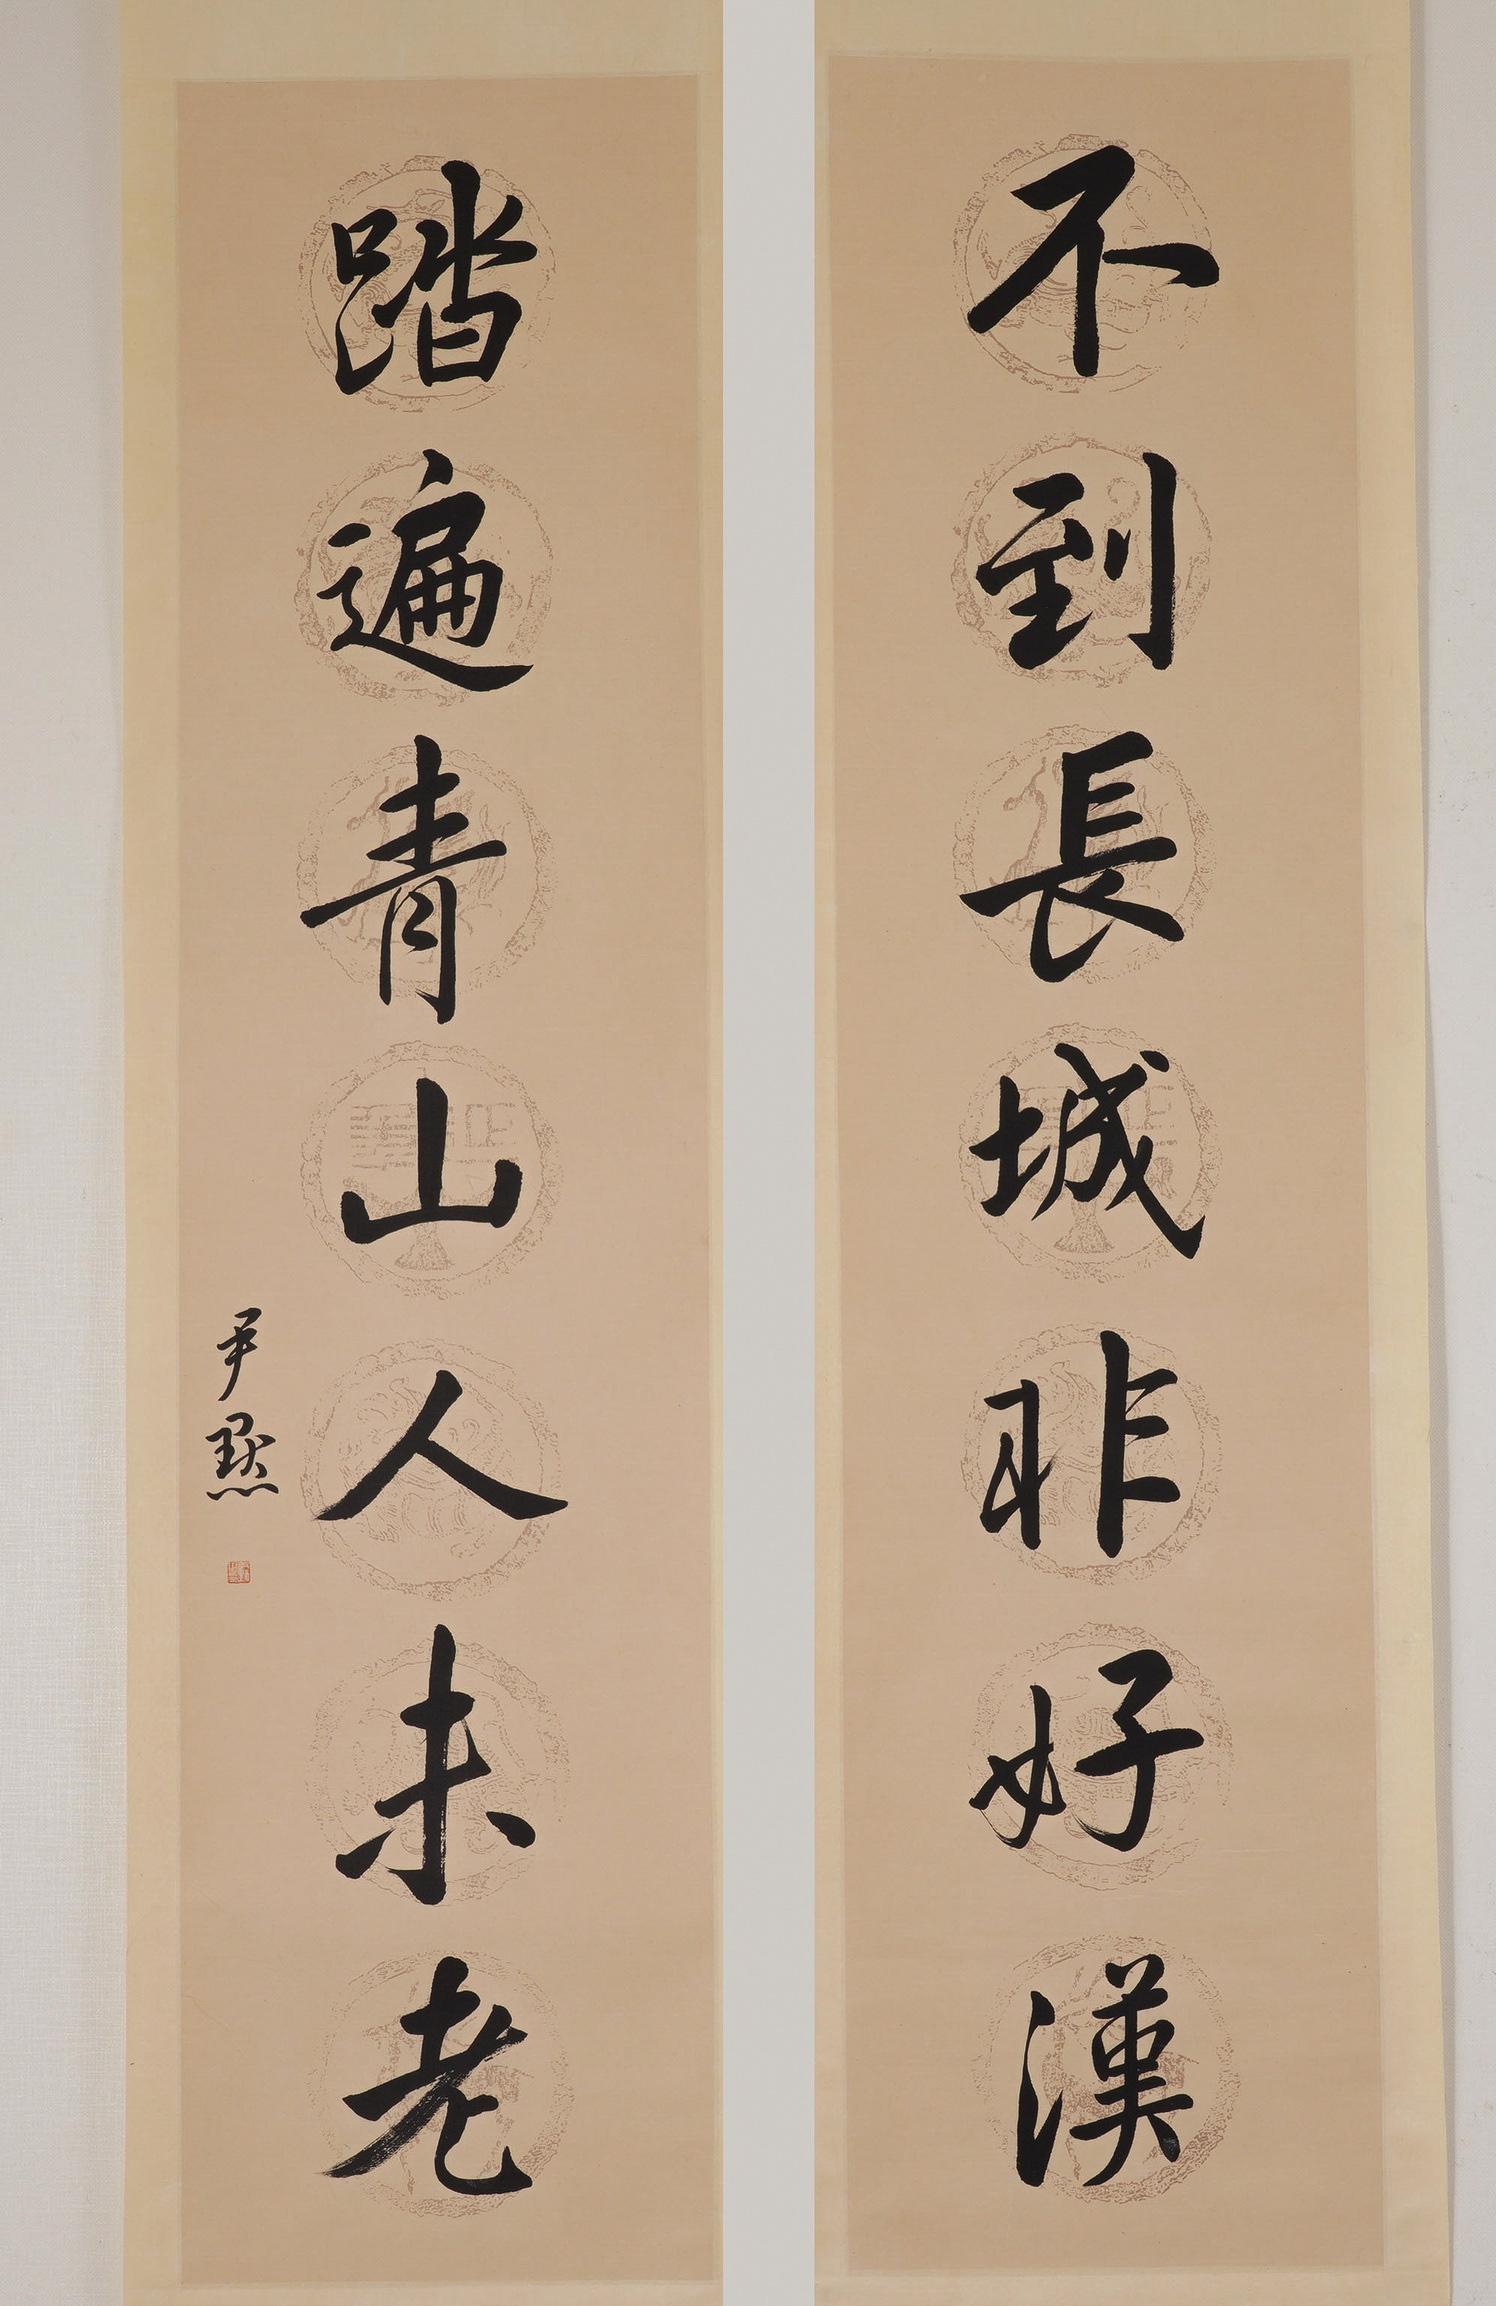 不到長城非好漢
踏遍青山人未老
尹默